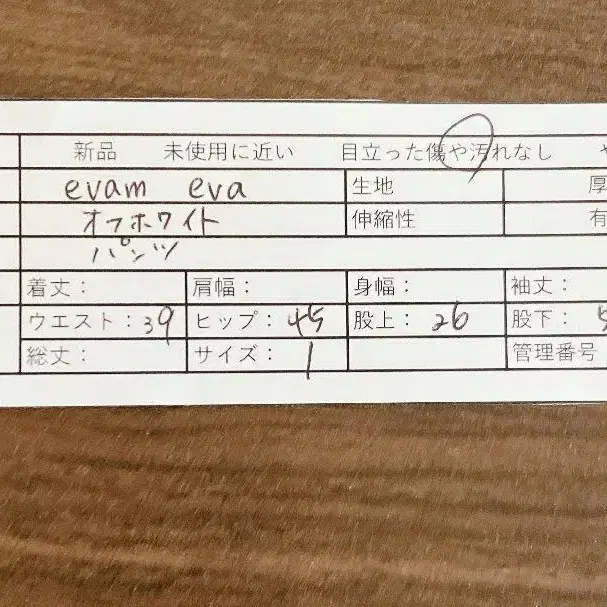 新品 未使用に近い 目立った傷や汚れなし
evam eva 生地 厚
オフホワイト 伸縮性 有
パンツ
着丈： 肩幅： 身幅： 袖丈：
ウエスト：39 ヒップ：45 股上：26 股下：5
総丈： サイズ：1 管理番号